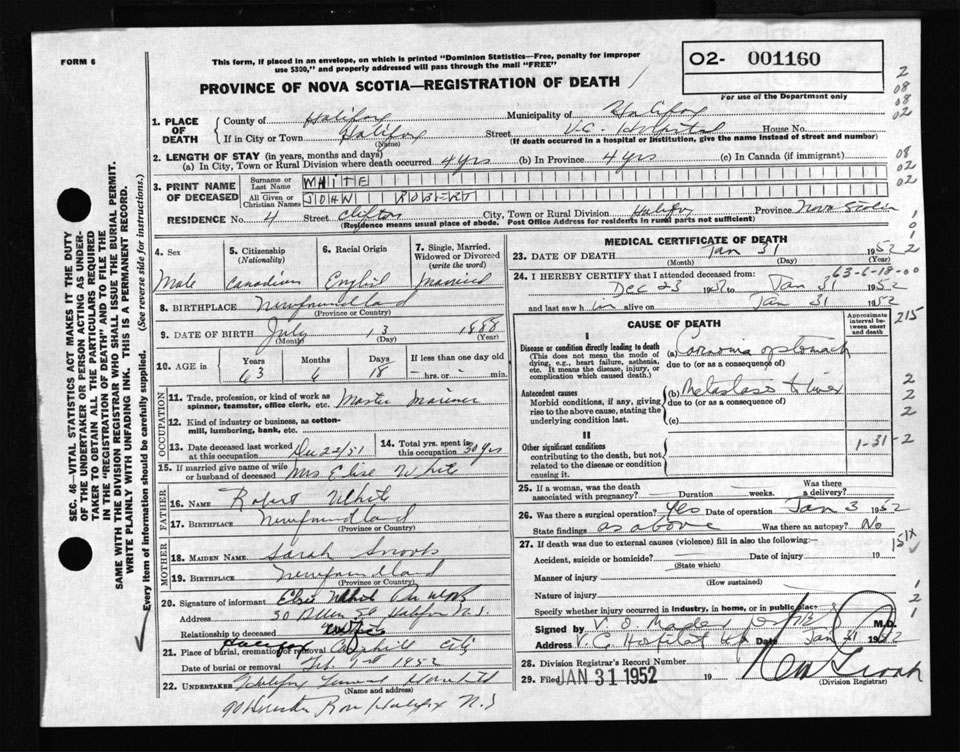 FORM 6
This form, if placed in an envelope, on which is printed "Dominion Statistics—Free, penalty for improper
use $300," and properly addressed will pass through the mail "FREE"
PROVINCE OF NOVA SCOTIA—REGISTRATION OF DEATH
02- 001160
For use of the Department only
SEC. 46—VITAL STATISTICS ACT MAKES IT THE DUTY
OF THE UNDERTAKER OR PERSON ACTING AS UNDER-
TAKER TO OBTAIN ALL THE PARTICULARS REQUIRED
IN THE "REGISTRATION OF DEATH" AND TO FILE THE
SAME WITH THE DIVISION REGISTRAR WHO SHALL ISSUE THE BURIAL PERMIT.
WRITE PLAINLY WITH UNFADING INK. THIS IS A PERMANENT RECORD.
Every item of information should be carefully supplied. (See reverse side for instructions.)
1. PLACE OF DEATH
County of Halifax Municipality of Halifax
If in City or Town Halifax Street V.G. Hospital House No.
(Name) (If death occurred in a hospital or institution, give the name instead of street and number)
2. LENGTH OF STAY (in years, months and days)
(a) In City, Town or Rural Division where death occurred 4 yrs (b) In Province 4 yrs (c) In Canada (if immigrant)
3. PRINT NAME OF DECEASED
Surname or Last Name WHITE
All Given or Christian Names JOHN ROBERT
RESIDENCE No. 4 Street Clifton City, Town or Rural Division Halifax Province Nova Scotia
(Residence means usual place of abode. Post Office Address for residents in rural parts not sufficient)
4. Sex Male
5. Citizenship (Nationality) Canadian
6. Racial Origin English
7. Single, Married, Widowed or Divorced (write the word) Married
8. BIRTHPLACE Newfoundland
(Province or Country)
9. DATE OF BIRTH July 13 1888
(Month) (Day) (Year)
10. AGE in Years 63 Months 6 Days 18 If less than one day old
hrs. or min.
OCCUPATION
11. Trade, profession, or kind of work as
spinner, teamster, office clerk, etc. Master Mariner
12. Kind of industry or business, as cotton-
mill, lumbering, bank, etc.
13. Date deceased last worked at this occupation Dec 22/51
14. Total yrs. spent in this occupation 30 yrs
15. If married give name of wife
or husband of deceased Mrs Elsie White
FATHER
16. NAME Robert White
17. BIRTHPLACE Newfoundland
(Province or Country)
MOTHER
18. MAIDEN NAME Sarah
19. BIRTHPLACE Newfoundland
(Province or Country)
20. Signature of informant Elsie White
Address Halifax N.S.
Relationship to deceased
21. Place of burial, cremation or removal Halifax City
Date of burial or removal Feb 1952
22. UNDERTAKER Halifax Funeral
(Name and address)
Halifax N.S
MEDICAL CERTIFICATE OF DEATH
23. DATE OF DEATH Jan 31 1952
(Month) (Day) (Year)
63-6-18-00
24. I HEREBY CERTIFY that I attended deceased from:
Dec 23 to Jan 31 1952
and last saw him alive on Jan 31 1952
CAUSE OF DEATH
Approximate interval between onset and death
I
Disease or condition directly leading to death
(This does not mean the mode of
dying, e.g., heart failure, asthenia,
etc. It means the disease, injury, or
complication which caused death.)
(a) Carcinoma of stomach
due to (or as a consequence of)
Antecedent causes
Morbid conditions, if any, giving
rise to the above cause, stating the
underlying condition last.
(b) Metastases to liver
due to (or as a consequence of)
(c)
II
Other significant conditions
contributing to the death, but not
related to the disease or condition
causing it.
1-31-2
25. If a woman, was the death
associated with pregnancy? Duration weeks. Was there a delivery?
26. Was there a surgical operation? Yes Date of operation Jan 3 1952
State findings as above Was there an autopsy? No
27. If death was due to external causes (violence) fill in also the following:
151X
Accident, suicide or homicide? Date of injury 19
(State which)
Manner of injury
(How sustained)
Nature of injury
Specify whether injury occurred in industry, in home, or in public place
Signed by V. O. Mader M.D.
Address V. G. Hospital Date Jan 31 1952
28. Division Registrar's Record Number
29. Filed JAN 31 1952 19
(Division Registrar)
2
08
08
02
08
02
02
1
0
1
2
215
2
2
2
2
1